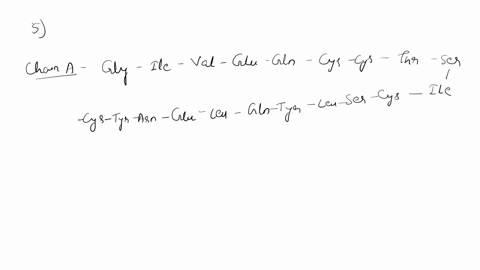 5)
Chain A - Gly - Ile - Val - Glu - Gln - Cys - Cys - Thr - Ser
- Cys - Tyr - Asn - Glu - Leu - Gln - Tyr - Leu - Ser - Cys - Ile